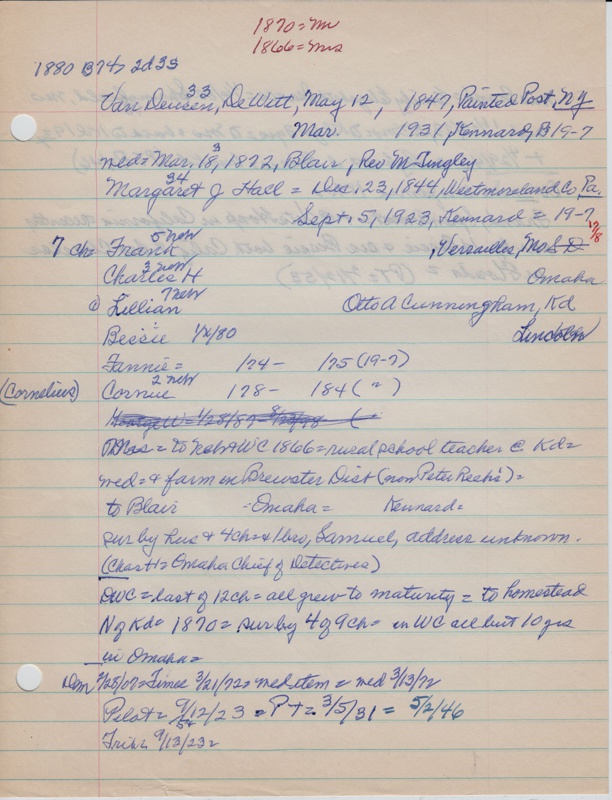 1870 = Mr
1866 = Mrs
1880 B74> 2d33
33
Van Deusen, DeWitt, May 12, 1847, Painted Post, NY
Mar. 1931, Kennard, B 19-7
3
wed = Mar. 18, 1872, Blair, Rev McTingley
34
Margaret J Hall = Dec. 23, 1844, Westmoreland Co, Pa.
Sept. 5, 1923, Kennard = 19-7
7 ch = Frank 5 new , Versailles, Mo S D 7/8
Charles H 3 new Omaha
Lillian 7 new Otto A Cunningham, Kd
Bessie 1/2/80 Lincoln
Fannie = 174 - 175 (19-7)
(Cornelius) Cornie 2 new 178 - 184 ( " )
Mrs = to Neb & WC 1866 = rural school teacher @ Kd =
wed = & farm in Brewster Dist (now Peter Resh's) =
to Blair - Omaha = Kennard =
sur by hus & 4 ch = & 1 bro, Samuel, address unknown.
(Chas H = Omaha Chief of Detectives)
DWC = last of 12 ch = all grew to maturity = to homestead
N of Kd = 1870 = sur by 4 of 9 ch = in WC all but 10 yrs
in Omaha =
Dem 9/25/07 = Times 3/21/72 = wed item = wed 3/13/72
Pilot = 9/12/23 = PT = 3/5/31 = 5/2/46
Trib = 9/13/23 =